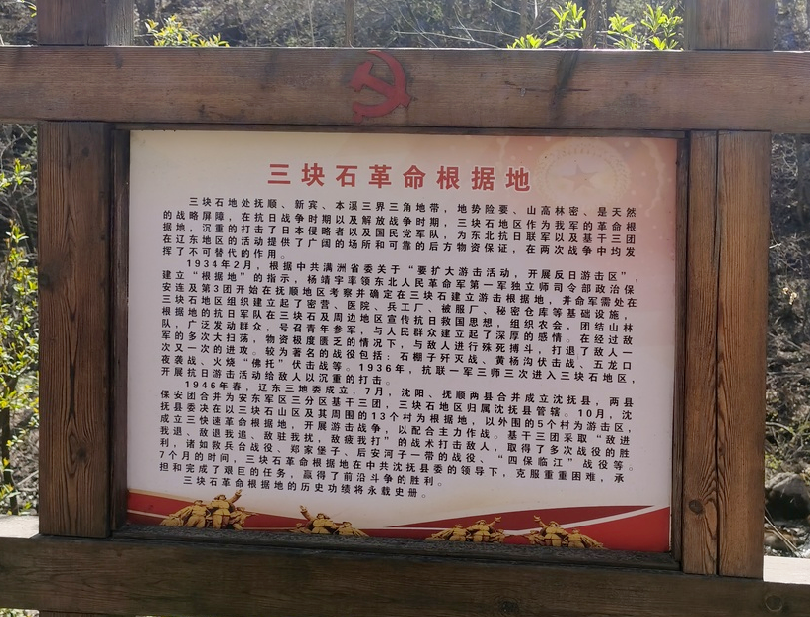 三块石革命根据地
三块石地处抚顺、新宾、本溪三界三角地带，地势险要、山高林密、是天然
的战略屏障，在抗日战争时期以及解放战争时期，三块石地区作为我军的革命根
据地，沉重的打击了日本侵略者以及国民党军队，为东北抗日联军以及基干三团
在辽东地区的活动提供了广阔的场所和可靠的后方物资保证，在两次战争中均发
挥了不可替代的作用。
1934年2月，根据中共满洲省委关于“要扩大游击活动，开展反日游击区”
建立“根据地”的指示，杨靖宇率领东北人民革命军第一军独立师司令部政治保
安连及第3团开始在抚顺地区考察并确定在三块石建立游击根据地，革命军需处在
三块石地区组织建立起了密营、医院、兵工厂、被服厂、秘密仓库等基础设施，
根据地的抗日军队在三块石及周边地区宣传抗日救国思想，组织农会，团结山林
队，广泛发动群众，号召青年参军，与人民群众建立起了深厚的感情。在经过敌
军的多次大扫荡，物资极度匮乏的情况下，与敌人进行殊死搏斗，打退了敌人一
次又一次的进攻。较为著名的战役包括：石棚子歼灭战、黄杨沟伏击战、五龙口
夜袭战、火烧“佛托”伏击战等。1936年，抗联一军三师三次进入三块石地区，
开展抗日游击活动给敌人以沉重的打击。
1946年春，辽东三地委成立，7月，沈阳、抚顺两县合并成立沈抚县，两县
保安团合并为安东军区三分区基干三团，三块石地区归属沈抚县管辖。10月，沈
抚县委决在以三块石山区及其周围的13个村为根据地，以外围的5个村为游击区，
成立三快速革命根据地，开展游击战争，以配合主力作战。基干三团采取“敌进
我退、敌退我追、敌驻我扰，敌疲我打”的战术打击敌人，取得了多次战役的胜
利，诸如救兵台战役、郑家堡子、后安河子一带的战役、“四保临江”战役等。
7个月的时间，三块石革命根据地在中共沈抚县委的领导下，克服重重困难，承
担和完成了艰巨的任务，赢得了前沿斗争的胜利。
三块石革命根据地的历史功绩将永载史册。